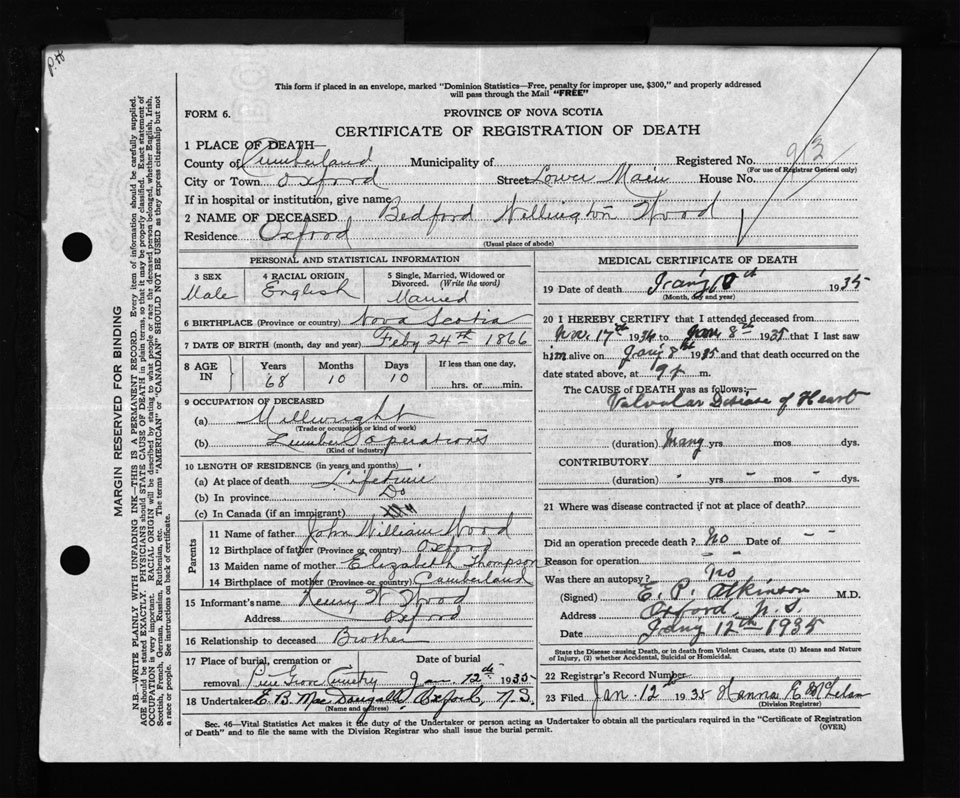 This form if placed in an envelope, marked "Dominion Statistics—Free, penalty for improper use, $300," and properly addressed
will pass through the Mail "FREE"
FORM 6.
PROVINCE OF NOVA SCOTIA
CERTIFICATE OF REGISTRATION OF DEATH
1 PLACE OF DEATH—
County of Cumberland Municipality of Registered No. 93
(For use of Registrar General only)
City or Town Oxford Street Lower Main House No.
If in hospital or institution, give name
2 NAME OF DECEASED Bedford Wellington Wood
Residence Oxford
(Usual place of abode)
PERSONAL AND STATISTICAL INFORMATION
3 SEX Male
4 RACIAL ORIGIN English
5 Single, Married, Widowed or
Divorced. (Write the word)
Married
6 BIRTHPLACE (Province or country) Nova Scotia
7 DATE OF BIRTH (month, day and year) Feby 24th 1866
8 AGE IN
Years 68
Months 10
Days 10
If less than one day,
hrs. or min.
9 OCCUPATION OF DECEASED
(a) Millwright
(Trade or occupation or kind of work)
(b) Lumber Operations
(Kind of industry)
10 LENGTH OF RESIDENCE (in years and months)
(a) At place of death Lifetime
(b) In province Do
(c) In Canada (if an immigrant)
Parents
11 Name of father John William Wood
12 Birthplace of father (Province or country) Oxford
13 Maiden name of mother Elizabeth Thompson
14 Birthplace of mother (Province or country) Cumberland
15 Informant's name Henry W Wood
Address Oxford
16 Relationship to deceased Brother
17 Place of burial, cremation or Date of burial
removal Pine Grove Cemetery Jan 12th 1935
18 Undertaker E. B. MacDougall, Oxford, N.S.
(Name and address)
MEDICAL CERTIFICATE OF DEATH
19 Date of death Jan'y 10th 1935
(Month, day and year)
20 I HEREBY CERTIFY that I attended deceased from
Nov. 17th 1934 to Jany 8th 1935 that I last saw
him alive on Jany 8th 1935 and that death occurred on the
date stated above, at 9 P. m.
The CAUSE OF DEATH was as follows:—
Valvular Disease of Heart
(duration) Many yrs mos dys.
CONTRIBUTORY
(duration) - yrs - mos - dys.
21 Where was disease contracted if not at place of death?
Did an operation precede death? No Date of - -
Reason for operation
Was there an autopsy? No
(Signed) E. P. Atkinson M.D.
Address Oxford, N.S.
Date Jany 12th 1935
State the Disease causing Death, or in death from Violent Causes, state (1) Means and Nature
of Injury, (2) whether Accidental, Suicidal or Homicidal.
22 Registrar's Record Number
23 Filed Jan. 12th 1935
(Division Registrar)
Sec. 46—Vital Statistics Act makes it the duty of the Undertaker or person acting as Undertaker to obtain all the particulars required in the "Certificate of Registration
of Death" and to file the same with the Division Registrar who shall issue the burial permit. (OVER)
MARGIN RESERVED FOR BINDING
N.B.—WRITE PLAINLY WITH UNFADING INK—THIS IS A PERMANENT RECORD. Every item of information should be carefully supplied.
AGE should be stated EXACTLY. PHYSICIANS should STATE CAUSE OF DEATH in plain terms, so that it may be properly classified. Exact statement of
OCCUPATION is very important. RACIAL ORIGIN will be described by stating to what people or race the deceased person belonged, whether English, Irish,
Scottish, French, German, Russian, Ruthenian, etc. The terms "AMERICAN" or "CANADIAN" SHOULD NOT BE USED as they express citizenship but not
a race or people. See instructions on back of certificate.